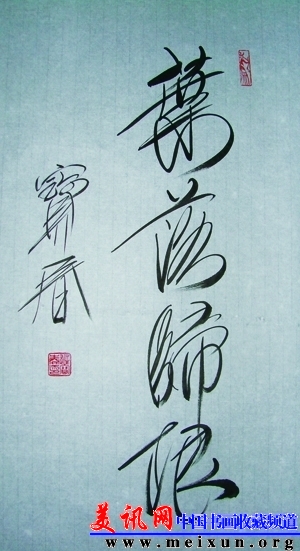 葉落歸根
寳春
美讯网 中国书画收藏频道
www.meixun.org